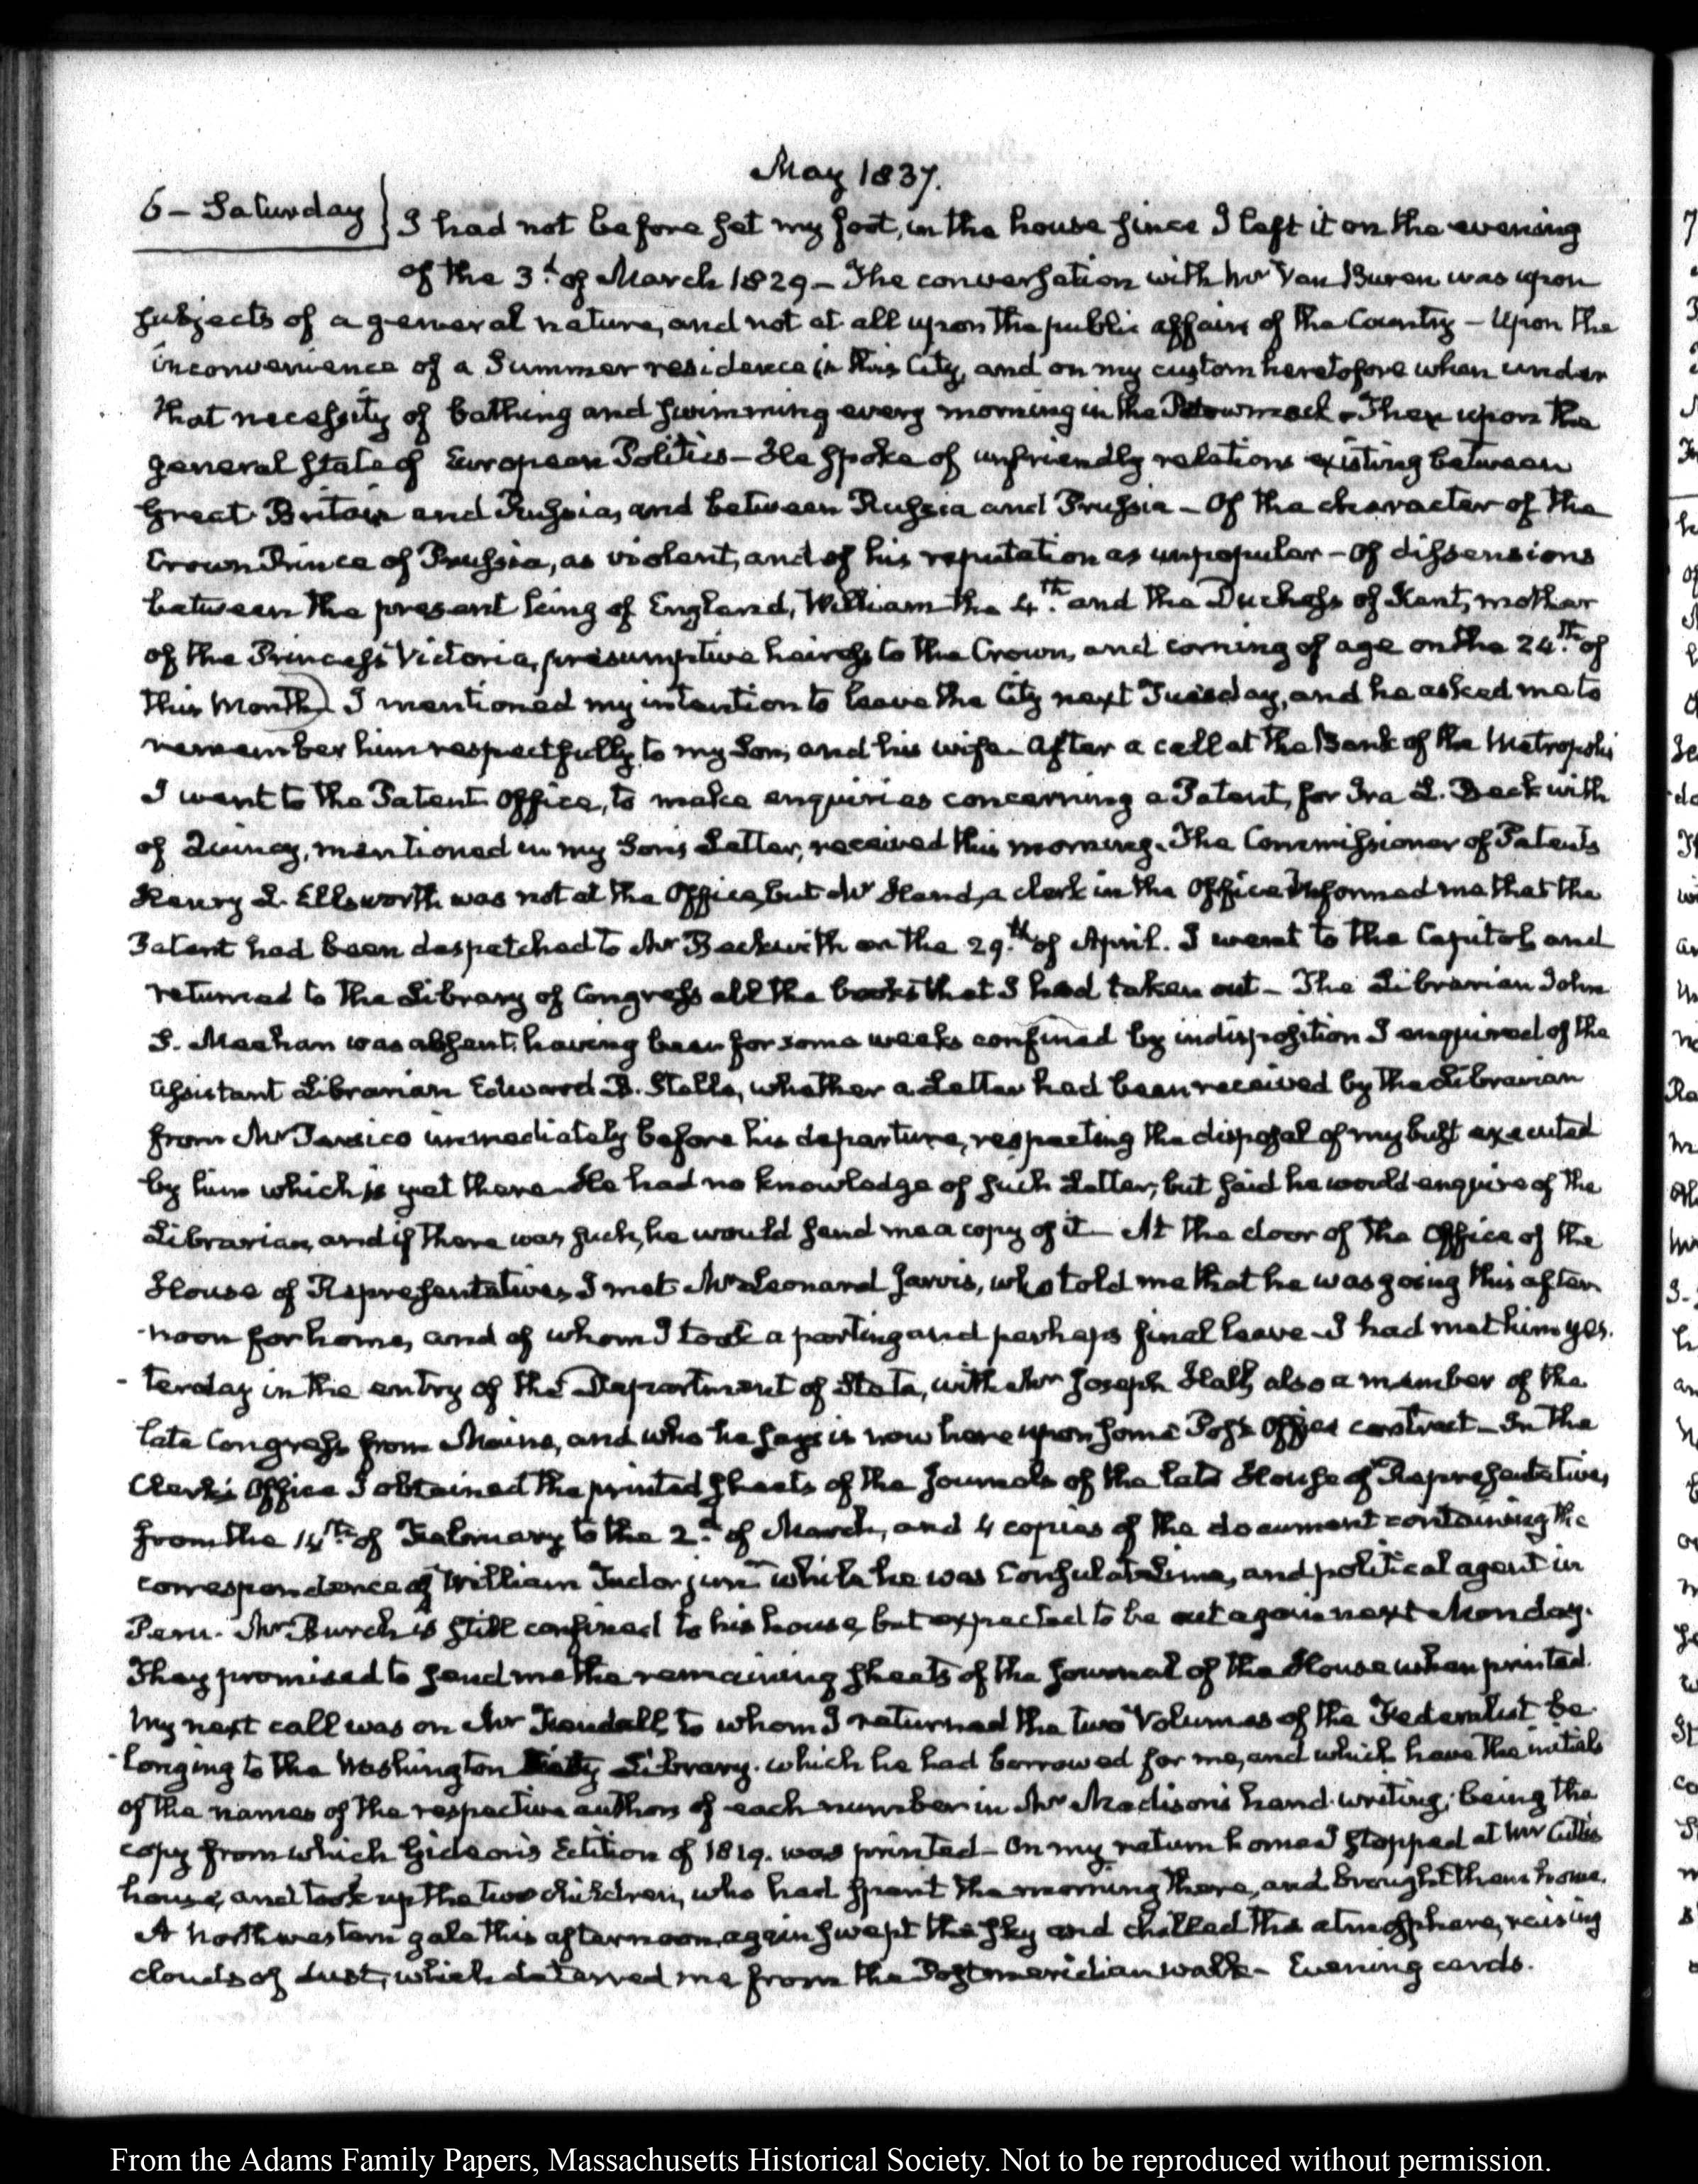 May 1837.
6 – Saturday } I had not before set my foot, in the house since I left it on the evening
of the 3.d of March 1829 – The conversation with Mr Van Buren was upon
subjects of a general nature, and not at all upon the public affairs of the Country – Upon the
inconvenience of a Summer residence in this City, and on my custom heretofore when under
that necessity of bathing and swimming every morning in the Potowmack. Then upon the
general state of European Politics – He spoke of unfriendly relations existing between
Great Britain and Russia, and between Russia and Prussia – Of the character of the
Crown Prince of Prussia, as violent, and of his reputation as unpopular – Of dissensions
between the present King of England, William the 4.th and the Duchess of Kent, mother
of the Princess Victoria, presumptive heiress to the Crown, and coming of age on the 24.th of
this Month. I mentioned my intention to leave the City next Tuesday, and he asked me to
remember him respectfully to my Son, and his wife. After a call at the Bank of the Metropolis
I went to the Patent Office, to make enquiries concerning a Patent, for Ira L. Beckwith
of Quincy, mentioned in my Son's Letter, received this morning. The Commissioner of Patents
Henry L. Ellsworth was not at the Office, but Mr Hand, a clerk in the Office informed me that the
Patent had been despatched to Mr Beckwith on the 29.th of April. I went to the Capitol and
returned to the Library of Congress all the books that I had taken out – The Librarian John
S. Meehan was absent, having been for some weeks confined by indisposition I enquired of the
Assistant Librarian Edward B. Stelle, whether a Letter had been received by the Librarian
from Mr Persico immediately before his departure, respecting the disposal of my bust executed
by him which is yet there. He had no knowledge of such Letter, but said he would enquire of the
Librarian, and if there was such, he would send me a copy of it – At the door of the Office of the
House of Representatives, I met Mr Leonard Jarvis, who told me that he was going this after
-noon for home, and of whom I took a parting and perhaps final leave – I had met him yes-
-terday in the entry of the Department of State, with Mr Joseph Hall, also a member of the
late Congress from Maine, and who he says is now here upon some Post Office contract – In the
Clerk's Office I obtained the printed sheets of the Journals of the late House of Representatives,
from the 14.th of February to the 2.d of March, and 4 copies of the document containing the
correspondence of William Tudor junr while he was Consul at Lima, and political agent in
Peru. Mr Burch is still confined to his house, but expected to be out again next Monday.
They promised to send me the remaining sheets of the Journal of the House when printed.
My next call was on Mr Kendall, to whom I returned the two Volumes of the Federalist be-
-longing to the Washington Library. which he had borrowed for me, and which have the initials
of the names of the respective authors of each number in Mr Madison's hand-writing; being the
copy from which Gideon's Edition of 1819. was printed – On my return home I stopped at Mr Cutts's
house, and took up the two children, who had spent the morning there, and brought them home.
A Northwestern gale this afternoon, again swept the sky and chilled the atmosphere, raising
clouds of dust, which deterred me from the Postmeridian walk – Evening cards.
From the Adams Family Papers, Massachusetts Historical Society. Not to be reproduced without permission.